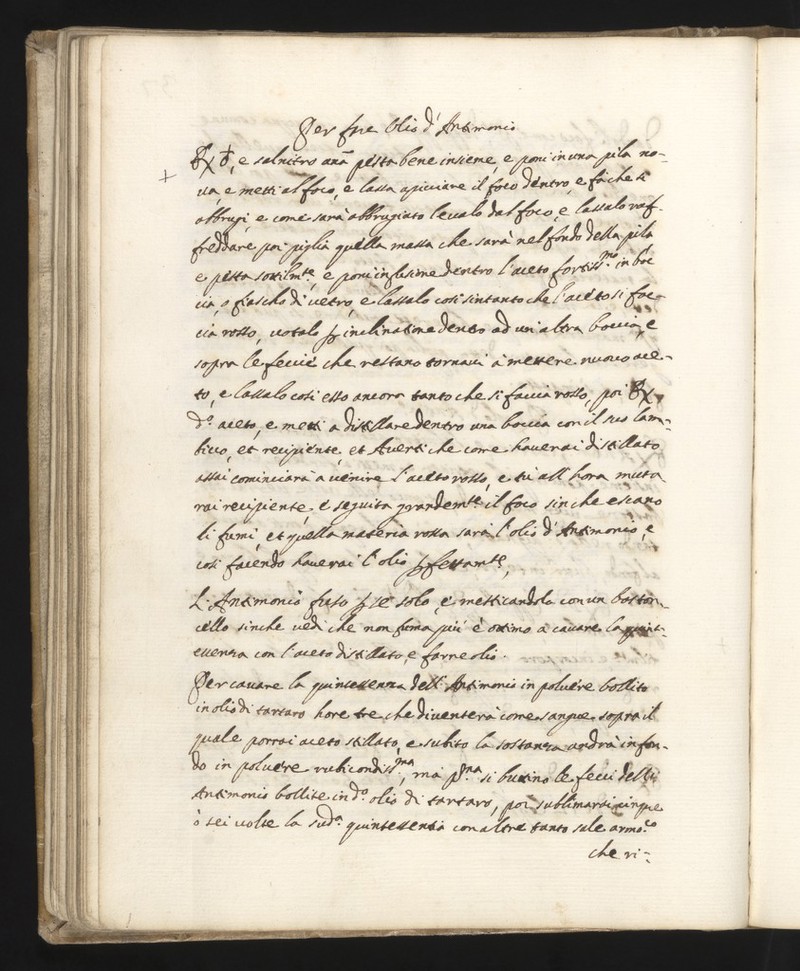 Per fare Olio d'Antimonio
℞ ♁, e salnitro anã pesta bene insieme, e poni in una pila no-
+ ua, e metti al foco, e lassa apiciare il foco dentro, e fà che si
abbrugi, e come sarà abbrugiato leualo dal foco, e lassalo raf-
freddare poi piglia quella massa che sarà nel fondo della pila
e pesta sottilm.te, e poni infusione dentro l'aceto fortiss.mo in boc
cia, o fiascho di uetro, e lassalo cosi sintanto che l'aceto si fac-
cia rosso, uotalo ꝑ inclinatione dentro ad un altra boccia, e
sopra le feccie che restano tornaui à mettere nuouo ace-
to, e lassalo cosi esso ancora tanto che si faccia rosso, poi ℞
d.o aceto, e metti a distillare dentro una boccia con il suo lam-
bicco, et recipiente, et Auerti che come hauerai distillato
assai cominciarà a uenire l'aceto rosso, e tù all'hora muta
rai recipiente, e seguita grandem.te il foco sin che escano
li fumi, et quella materia rossa sarà l'olio d'Antimonio, e
cosi facendo hauerai l'olio ꝑfettam.te,
L'Antimonio fuso ꝑ se solo, e mesticandolo con un baston-
cello sinche uedi che non fuma più è ottimo a cauare la quint-
essenza con l'aceto distillato, e farne olio.
Per cauare la quintessenza dell'Antimonio in poluere bollito
in olio di tartaro hore tre che diuenterà come sangue sopra il
quale porrai aceto stillato, e subito la sostanza andrà in fon-
do in poluere rubicondiss.ma, mà p.ma si buttino le feci dell'
Antimonio bollite in d.o olio di tartaro, poi sublimarai cinque
ò sei uolte la sud.a quintessentia con altre tanto sale armo.co
che ri-